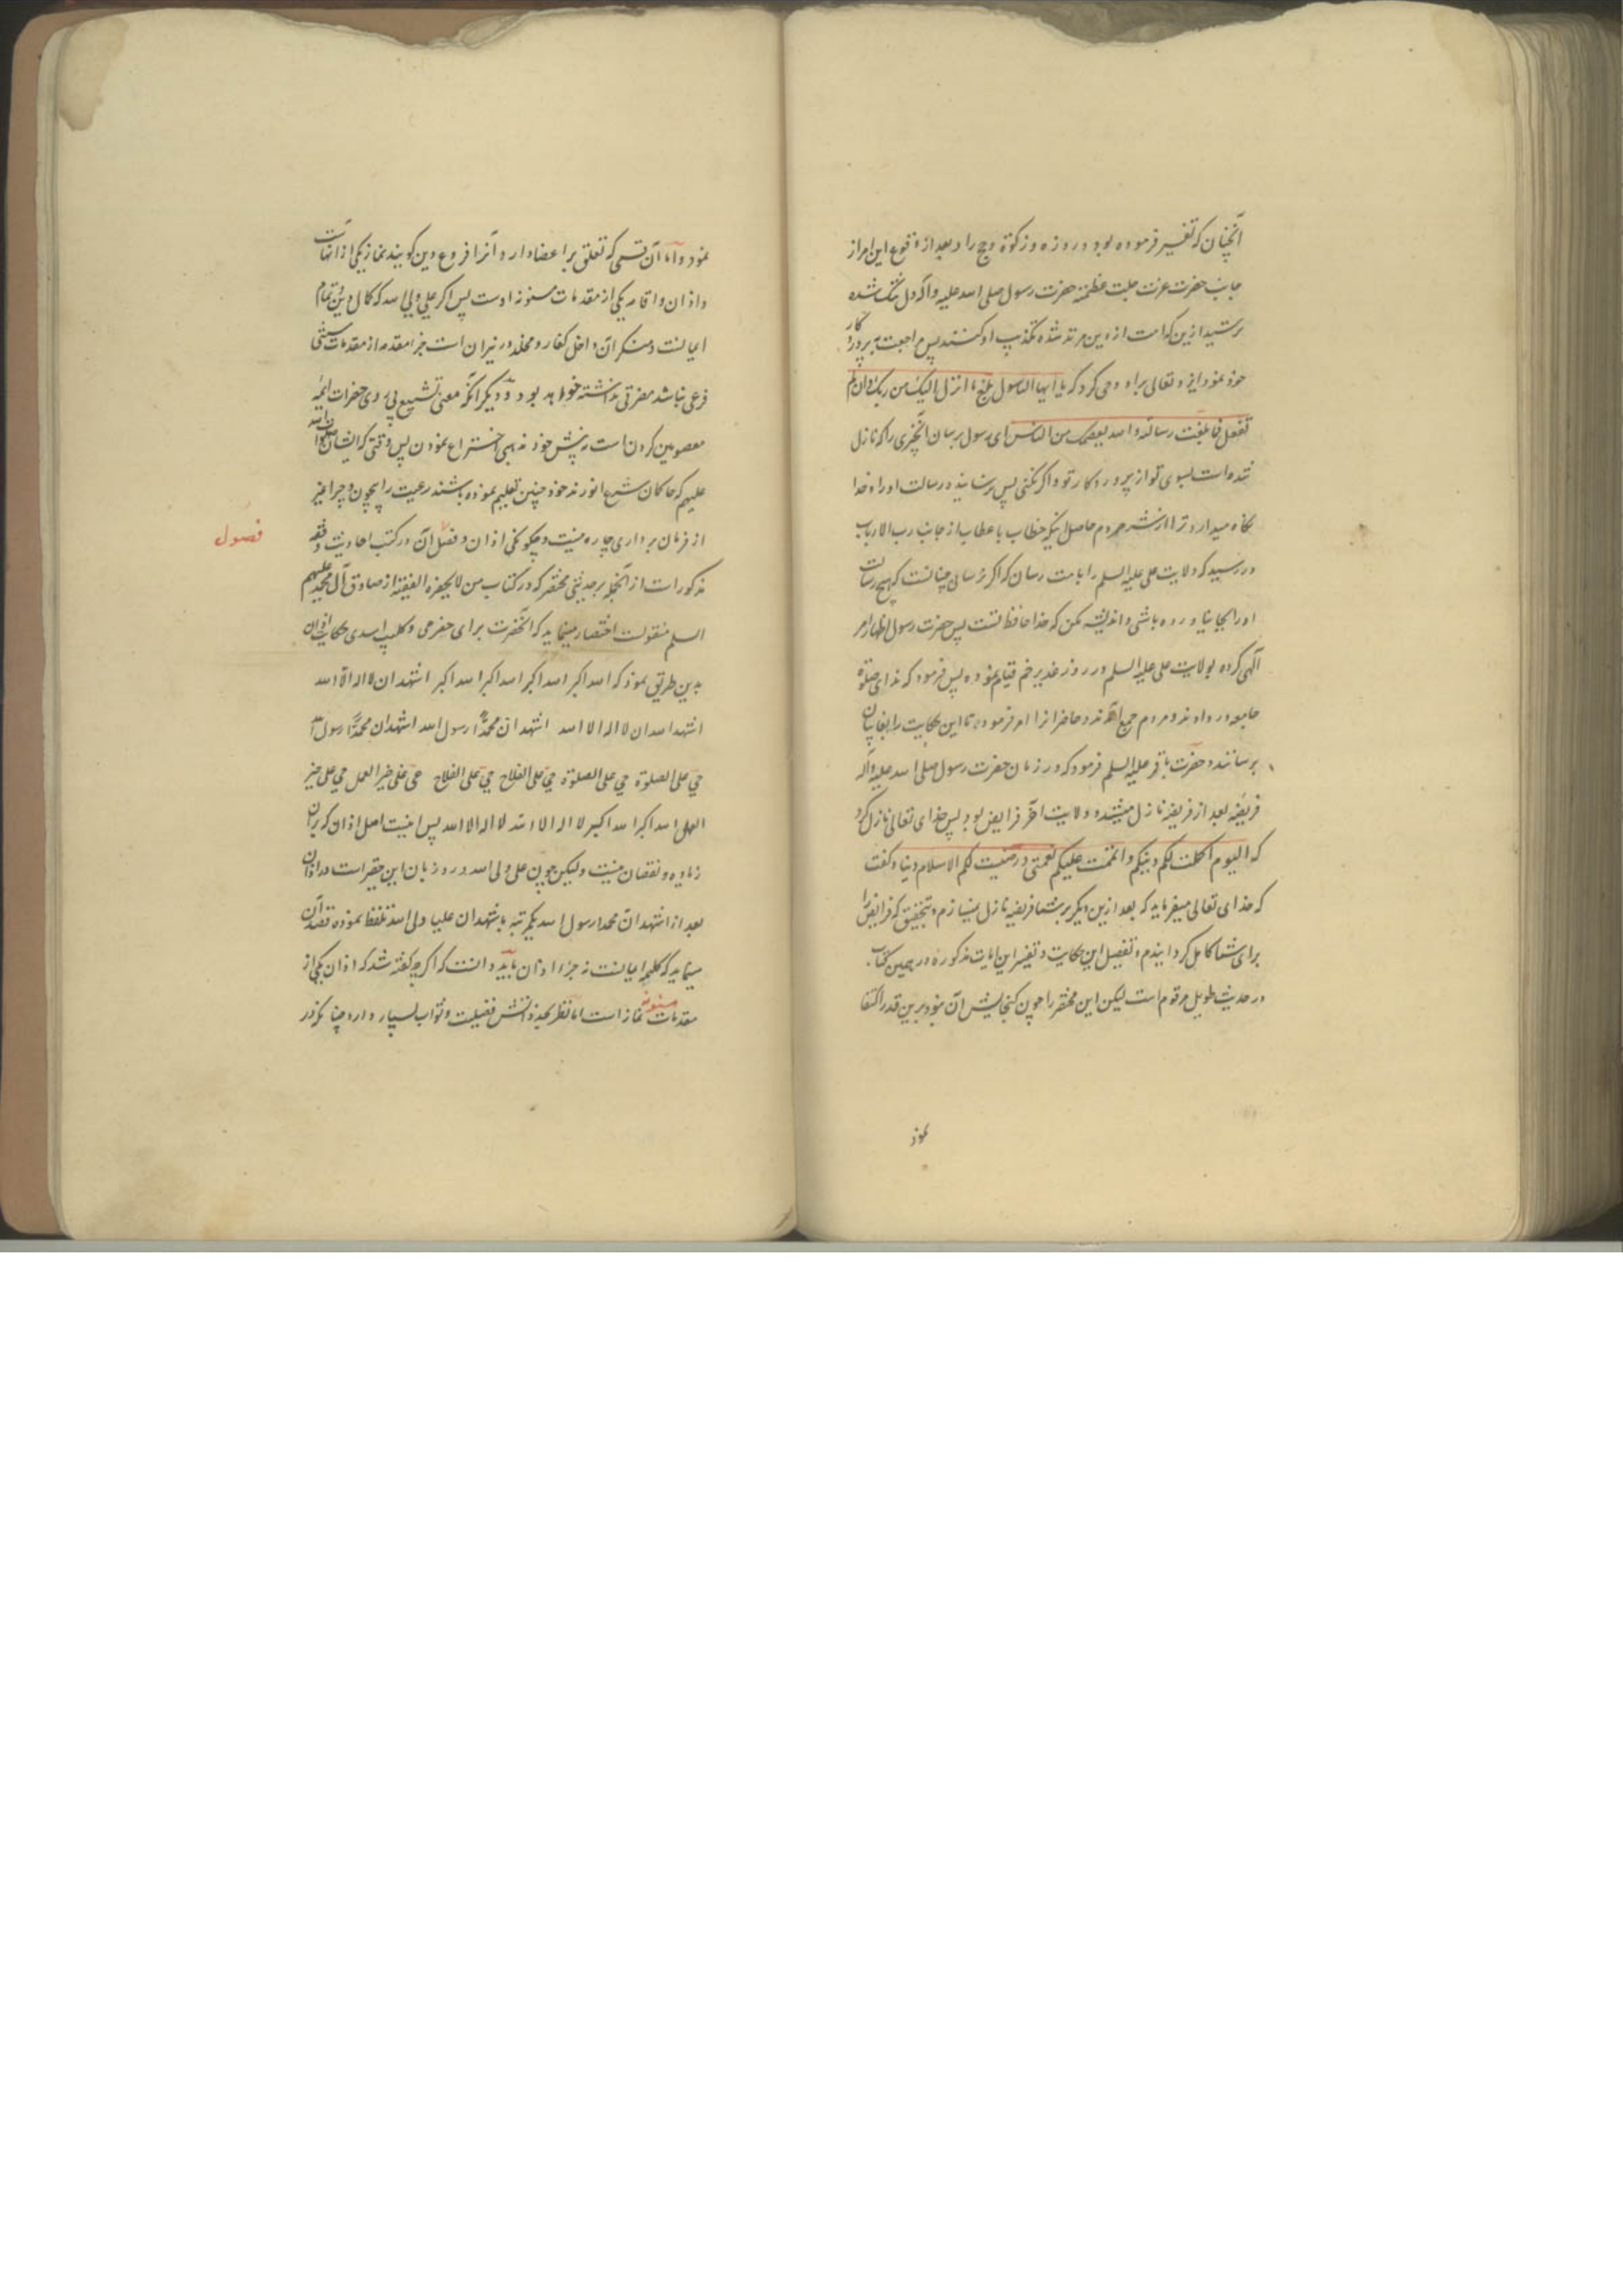 آنچنان که تفسیر فرموده بود در روزه و زکوة و حج را و بعد از وقوع این امر از
جانب حضرت عزت جلت عظمته حضرت رسول صلی الله علیه واله دل تنک شده
ترسید ازین که امت از دین مرتد شده تکذیب او کنند پس مراجعت به پروردکار
خود نمود ایزد تعالی براه وحی کرد که یا ایها الرسول بلغ ما انزل الیک من ربک وان لم
تفعل فما بلغت رسالته والله یعصمک من الناس ای رسول برسان آنچیزی را که نازل
شده است بسوی تو از پروردکار تو و اکر نکنی پس نرسانیده رسالت او را و خدا
نکاه میدارد ترا از شر مردم حاصل اینکه خطاب با عطاب از جانب رب الارباب
در رسید که ولایت علی علیه السلم را بامت رسان که اکر نرسانی چنانست که هیچ رسالت
او را بجا نیاورده باشی و اندیشه مکن که خدا حافظ تست پس حضرت رسول اظهار امر
الهی کرده بولایت علی علیه السلم در روز غدیر خم قیام نموده پس فرمود که ندای صلوة
جامعه در دادند و مردم جمع آمدند و حاضرانرا امر فرموده تا این حکایت را بغایبان
برسانند و حضرت باقر علیه السلم فرمود که در زمان حضرت رسول صلی الله علیه واله
فریضه بعد از فریضه نازل میشد و ولایت آخر فرایض بود پس خدای تعالی نازل کرد
که الیوم اکملت لکم دینکم واتممت علیکم نعمتی ورضیت لکم الاسلام دینا و کفت
که خدای تعالی میفرماید که بعد ازین دیکر بر شما فریضه نازل نمیسازم و بتحقیق که فرایض را
برای شما کامل کردانیدم و تفصیل این حکایت و تفسیر این ایات مذکوره در همین کتاب
در حدیث طویل مرقوم است لیکن این مختصر را چون کنجایش آن نبود برین قدر اکتفا
نمود
نمود و اما آن قسمی که تعلق بر اعضا دارد و آنرا فروع دین کویند نماز یکی از انهاست
و اذان و اقامه یکی از مقدمات مسنونه اوست پس اکر علی ولی الله که کمال دین و تمام
ایمانست و منکر آن داخل کفار و مخلد در نیران است جزء مقدمه از مقدمات شیئی
فرعی نباشد مضرتی نداشته خواهد بود و دیکر آنکه معنی تشیع پیروی حضرات ائمه
معصومین کردن است نه پیش خود مذهبی اختراع نمودن پس وقتی که ایشان صلوات الله
علیهم که حاکمان شرع انورند خود چنین تعلیم نموده باشند رعیت را بچون و چرا غیر
از فرمان برداری چاره نیست و چکونکی اذان و فضل آن در کتب احادیث و فقه
فصول
مذکور است از آنجمله بر حدیثی مختصر که در کتاب من لا یحضره الفقیه از صادق آل محمد علیهم
السلم منقولست اختصار مینماید که انحضرت برای حضرمی و کلیب اسدی حکایت اذان
بدین طریق نمود که الله اکبر الله اکبر الله اکبر الله اکبر اشهد ان لا اله الا الله
اشهد ان لا اله الا الله اشهد ان محمدا رسول الله اشهد ان محمدا رسول الله
حی علی الصلوة حی علی الصلوة حی علی الفلاح حی علی الفلاح حی علی خیر العمل حی علی خیر
العمل الله اکبر الله اکبر لا اله الا الله لا اله الا الله پس اینست اصل اذان که بر ان
زیاده و نقصان نیست ولیکن چون علی ولی الله ورد زبان این حقیر است در اذان
بعد از اشهد ان محمدا رسول الله یکمرتبه باشهد ان علیا ولی الله تلفظ نموده قصد آن
مینماید که کلمه ایمانست نه جزء اذان باید دانست که اکرچه کفته شد که اذان یکی از
مقدمات مسنونه نماز است اما نظر بحد ذاتش فضیلت و ثواب بسیار دارد چنانکه در